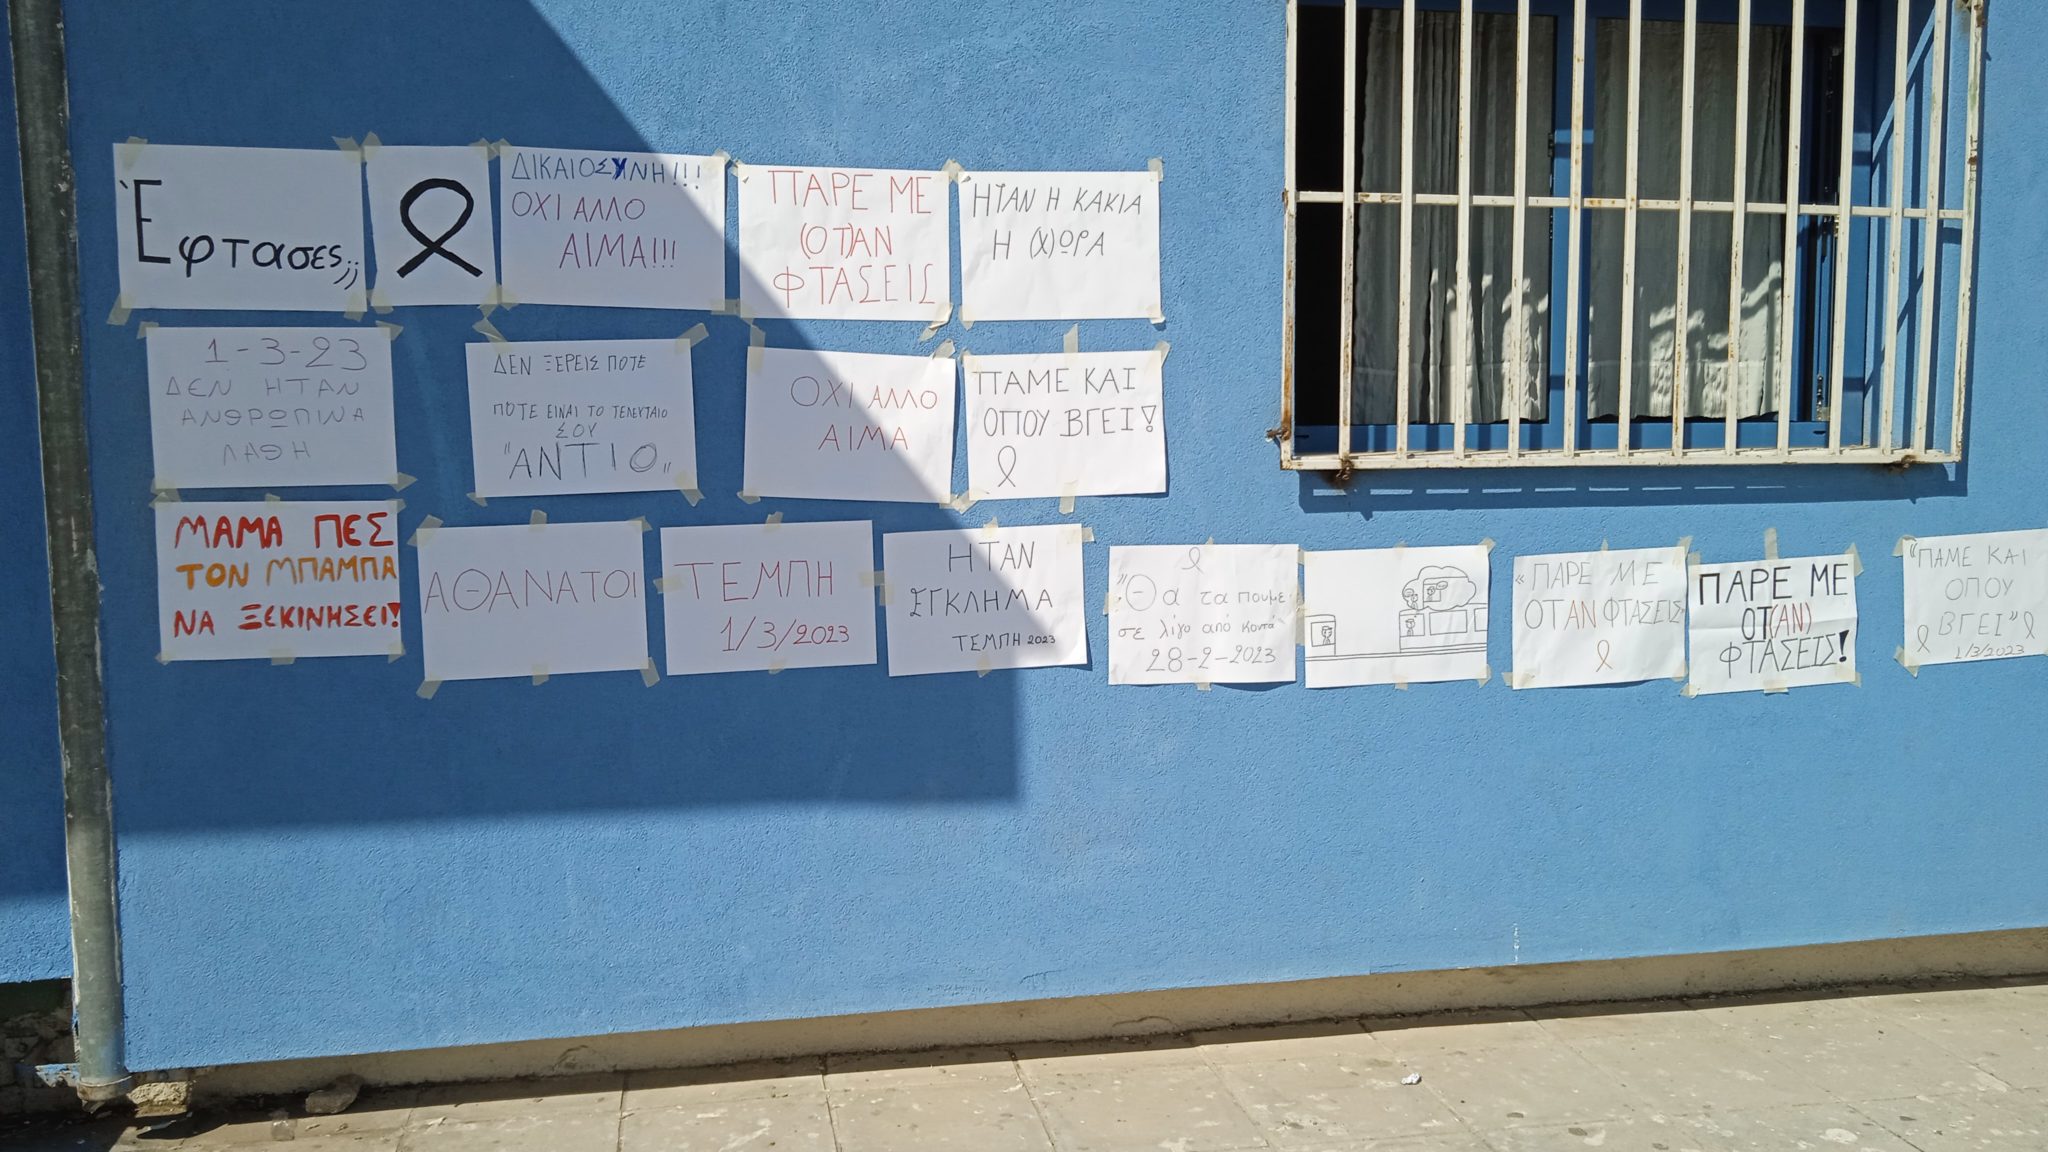 Έφτασες;;
ΔΙΚΑΙΟΣΥΝΗ!!!
ΟΧΙ ΑΛΛΟ
ΑΙΜΑ!!!
ΠΑΡΕ ΜΕ
(ΟΤ)ΑΝ
ΦΤΑΣΕΙΣ
ΗΤΑΝ Η ΚΑΚΙΑ
Η (Χ)ΩΡΑ
1-3-23
ΔΕΝ ΗΤΑΝ
ΑΝΘΡΩΠΙΝΑ
ΛΑΘΗ
ΔΕΝ ΞΕΡΕΙΣ ΠΟΤΕ
ΠΟΤΕ ΕΙΝΑΙ ΤΟ ΤΕΛΕΥΤΑΙΟ
ΣΟΥ
"ΑΝΤΙΟ"
ΟΧΙ ΑΛΛΟ
ΑΙΜΑ
ΠΑΜΕ ΚΑΙ
ΟΠΟΥ ΒΓΕΙ!
ΜΑΜΑ ΠΕΣ
ΤΟΝ ΜΠΑΜΠΑ
ΝΑ ΞΕΚΙΝΗΣΕΙ!
ΑΘΑΝΑΤΟΙ
ΤΕΜΠΗ
1/3/2023
ΗΤΑΝ
ΕΓΚΛΗΜΑ
ΤΕΜΠΗ 2023
"Θα τα πούμε
σε λίγο από κοντά"
28-2-2023
«ΠΑΡΕ ΜΕ
ΟΤΑΝ ΦΤΑΣΕΙΣ»
ΠΑΡΕ ΜΕ
ΟΤ(ΑΝ)
ΦΤΑΣΕΙΣ!
"ΠΑΜΕ ΚΑΙ
ΟΠΟΥ
ΒΓΕΙ"
1/3/2023